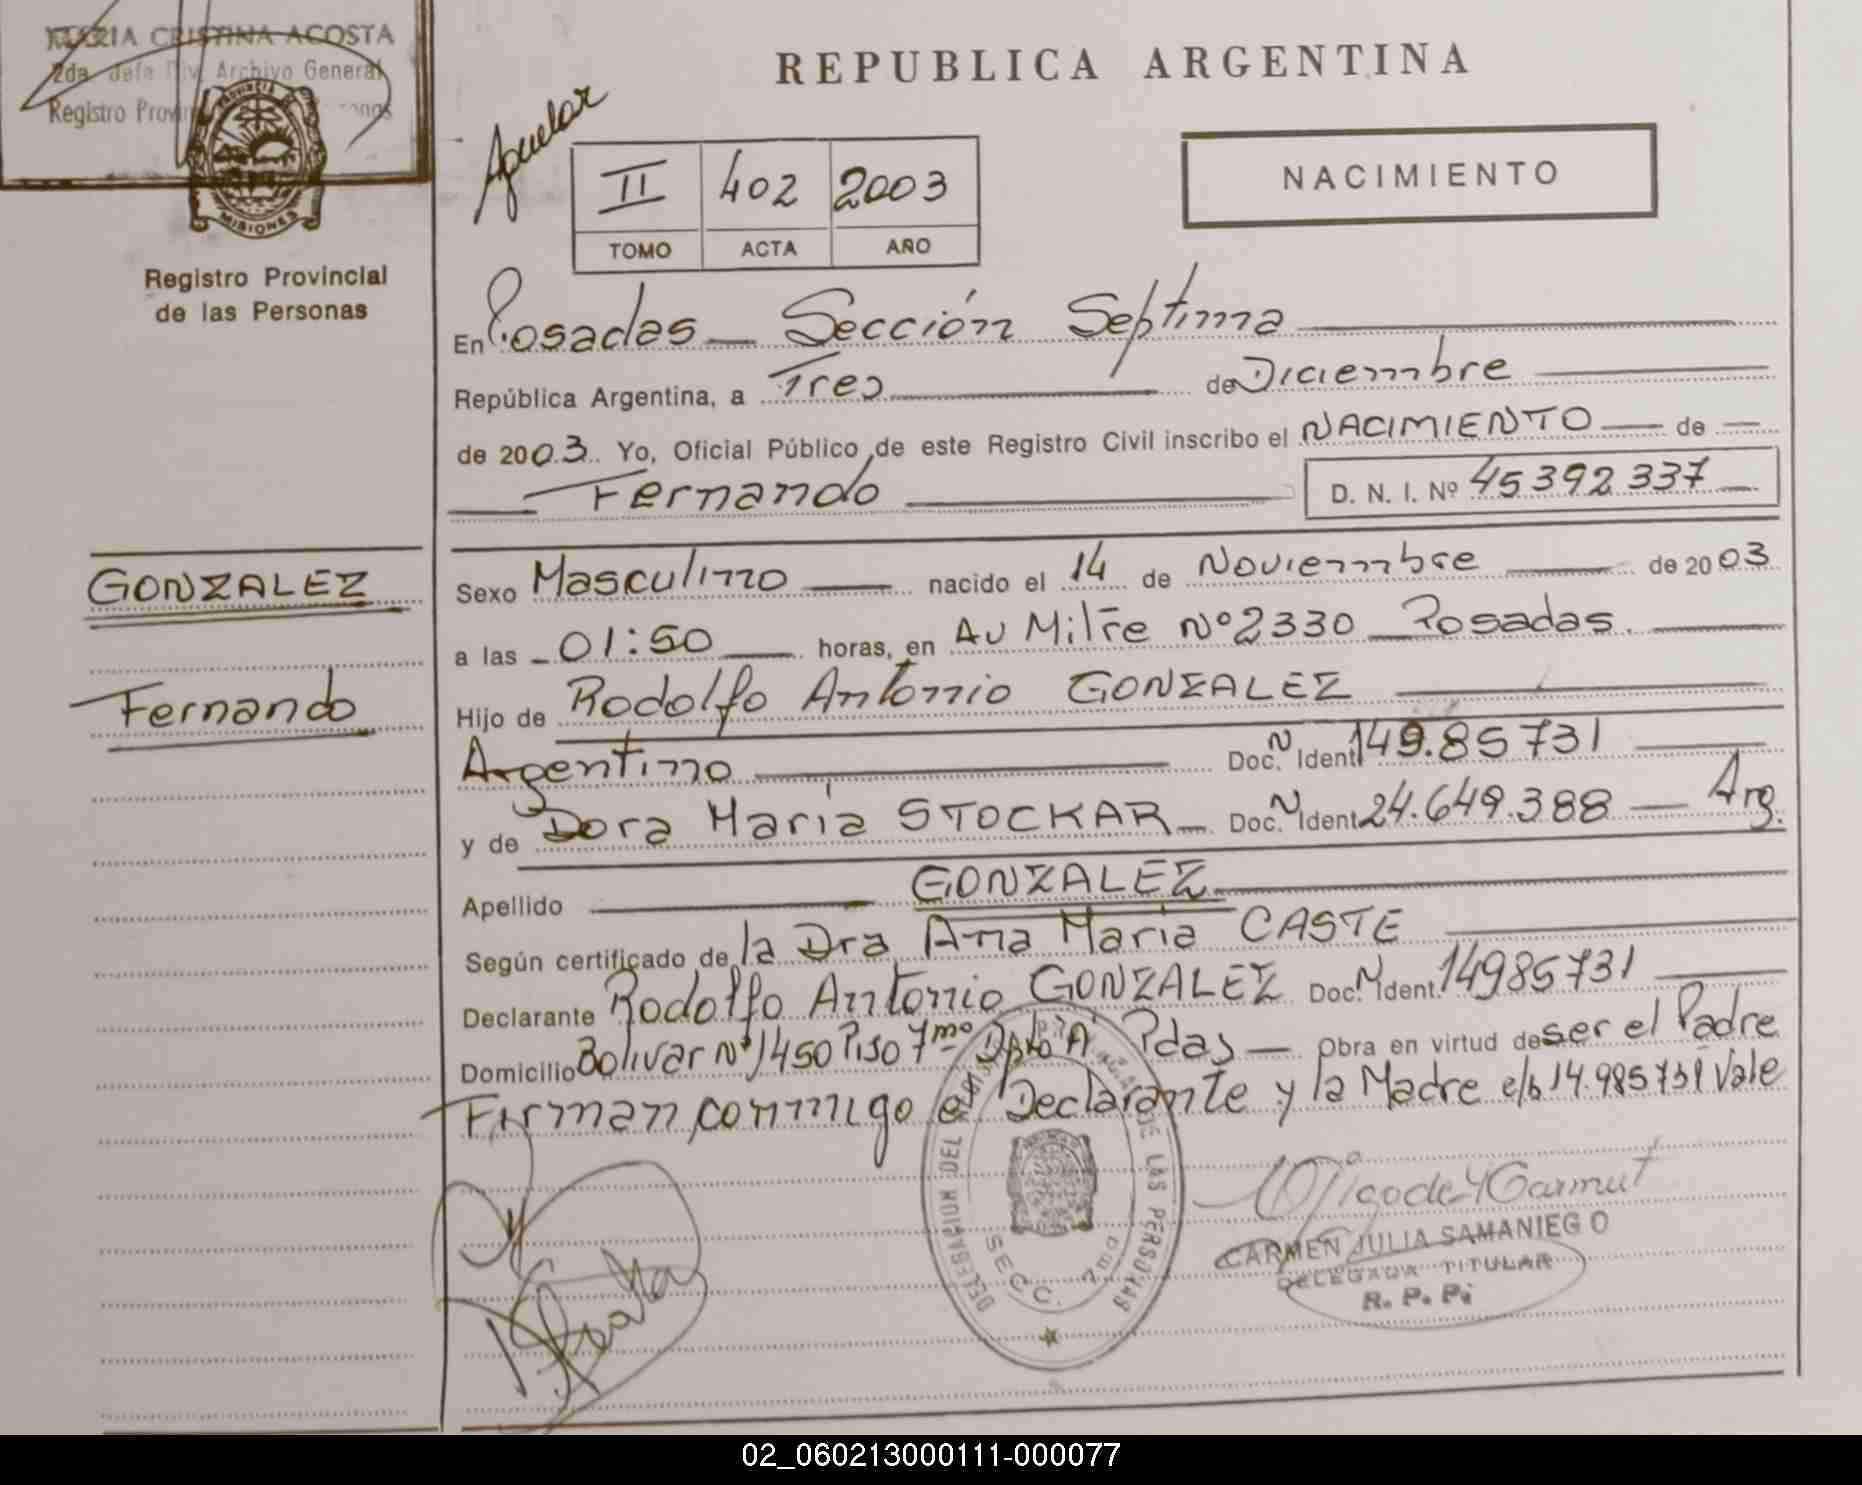 MARIA CRISTINA ACOSTA
2da. Jefa Div. Archivo General
Registro
PROVINCIA DE
MISIONES
Registro Provincial
de las Personas
REPUBLICA ARGENTINA
II 402 2003
TOMO ACTA AÑO
NACIMIENTO
En Posadas — Sección Septima
República Argentina, a Tres de Diciembre
de 2003. Yo, Oficial Público de este Registro Civil inscribo el NACIMIENTO — de —
Fernando D. N. I. Nº 45392337
GONZALEZ
Fernando
Sexo Masculino nacido el 14 de Noviembre de 2003
a las 01:50 horas, en Av Mitre Nº 2330 Posadas.
Hijo de Rodolfo Antonio GONZALEZ
Argentino Doc. N Ident 149.85731
y de Dora María STOCKAR — Doc. N Ident 24.649.388 — Arg.
Apellido GONZALEZ
Según certificado de la Dra Ana Maria CASTE
Declarante Rodolfo Antonio GONZALEZ Doc. N Ident. 14985731
Domicilio Bolivar Nº 1450 Piso 7mo Dpto A Pdas — Obra en virtud de ser el Padre
Firman conmigo el Declarante y la Madre e/b 14.985731 Vale
DELEGACION DEL REGISTRO PROVINCIAL DE LAS PERSONAS
SECC. 7ma
CARMEN JULIA SAMANIEGO
DELEGADA TITULAR
R. P. P.
02_060213000111-000077